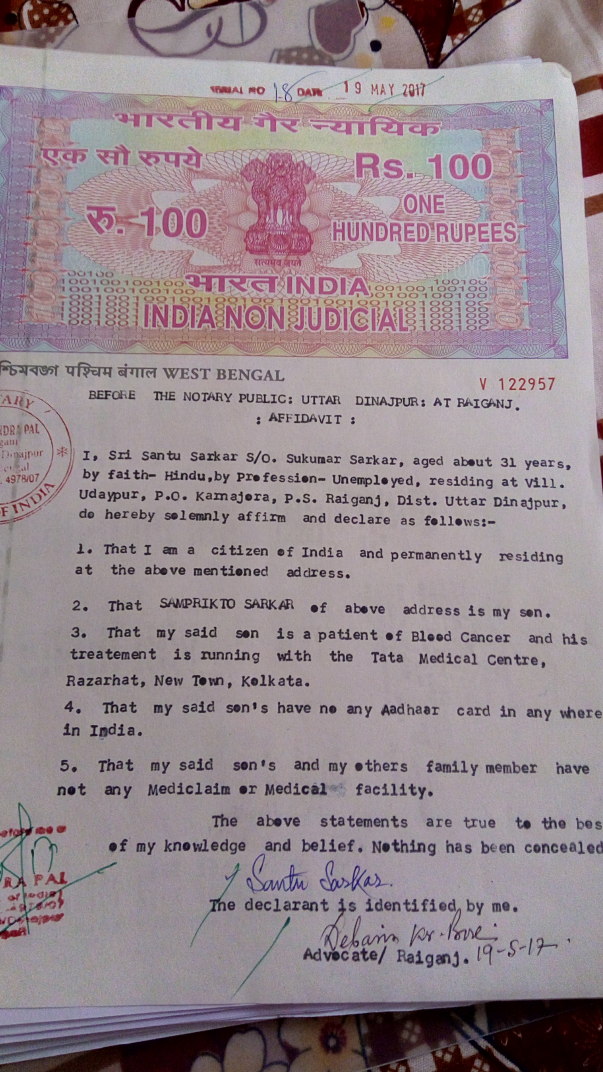 SERIAL NO 18 DATE 19 MAY 2017
भारतीय गैर न्यायिक
एक सौ रुपये
Rs. 100
रु. 100
ONE
HUNDRED RUPEES
सत्यमेव जयते
भारत INDIA
INDIA NON JUDICIAL
पश्चिम बंगाल WEST BENGAL
V 122957
BEFORE THE NOTARY PUBLIC: UTTAR DINAJPUR: AT RAIGANJ.
: AFFIDAVIT :
I, Sri Santu Sarkar S/O. Sukumar Sarkar, aged about 31 years,
by faith- Hindu,by Profession- Unemployed, residing at Vill.
Udaypur, P.O. Karnajora, P.S. Raiganj, Dist. Uttar Dinajpur,
do hereby solemnly affirm and declare as follows:-
1. That I am a citizen of India and permanently residing
at the above mentioned address.
2. That SAMPRIKTO SARKAR of above address is my son.
3. That my said son is a patient of Blood Cancer and his
treatement is running with the Tata Medical Centre,
Razarhat, New Town, Kolkata.
4. That my said son's have no any Aadhaar card in any where
in India.
5. That my said son's and my others family member have
not any Mediclaim or Medical facility.
The above statements are true to the bes
of my knowledge and belief. Nothing has been concealed
Santu Sarkar.
The declarant is identified by me.
Advocate/ Raiganj. 19-5-17.
ARY
NDRA PAL
Dinajpur
4978/07
OF INDIA
RA PAL